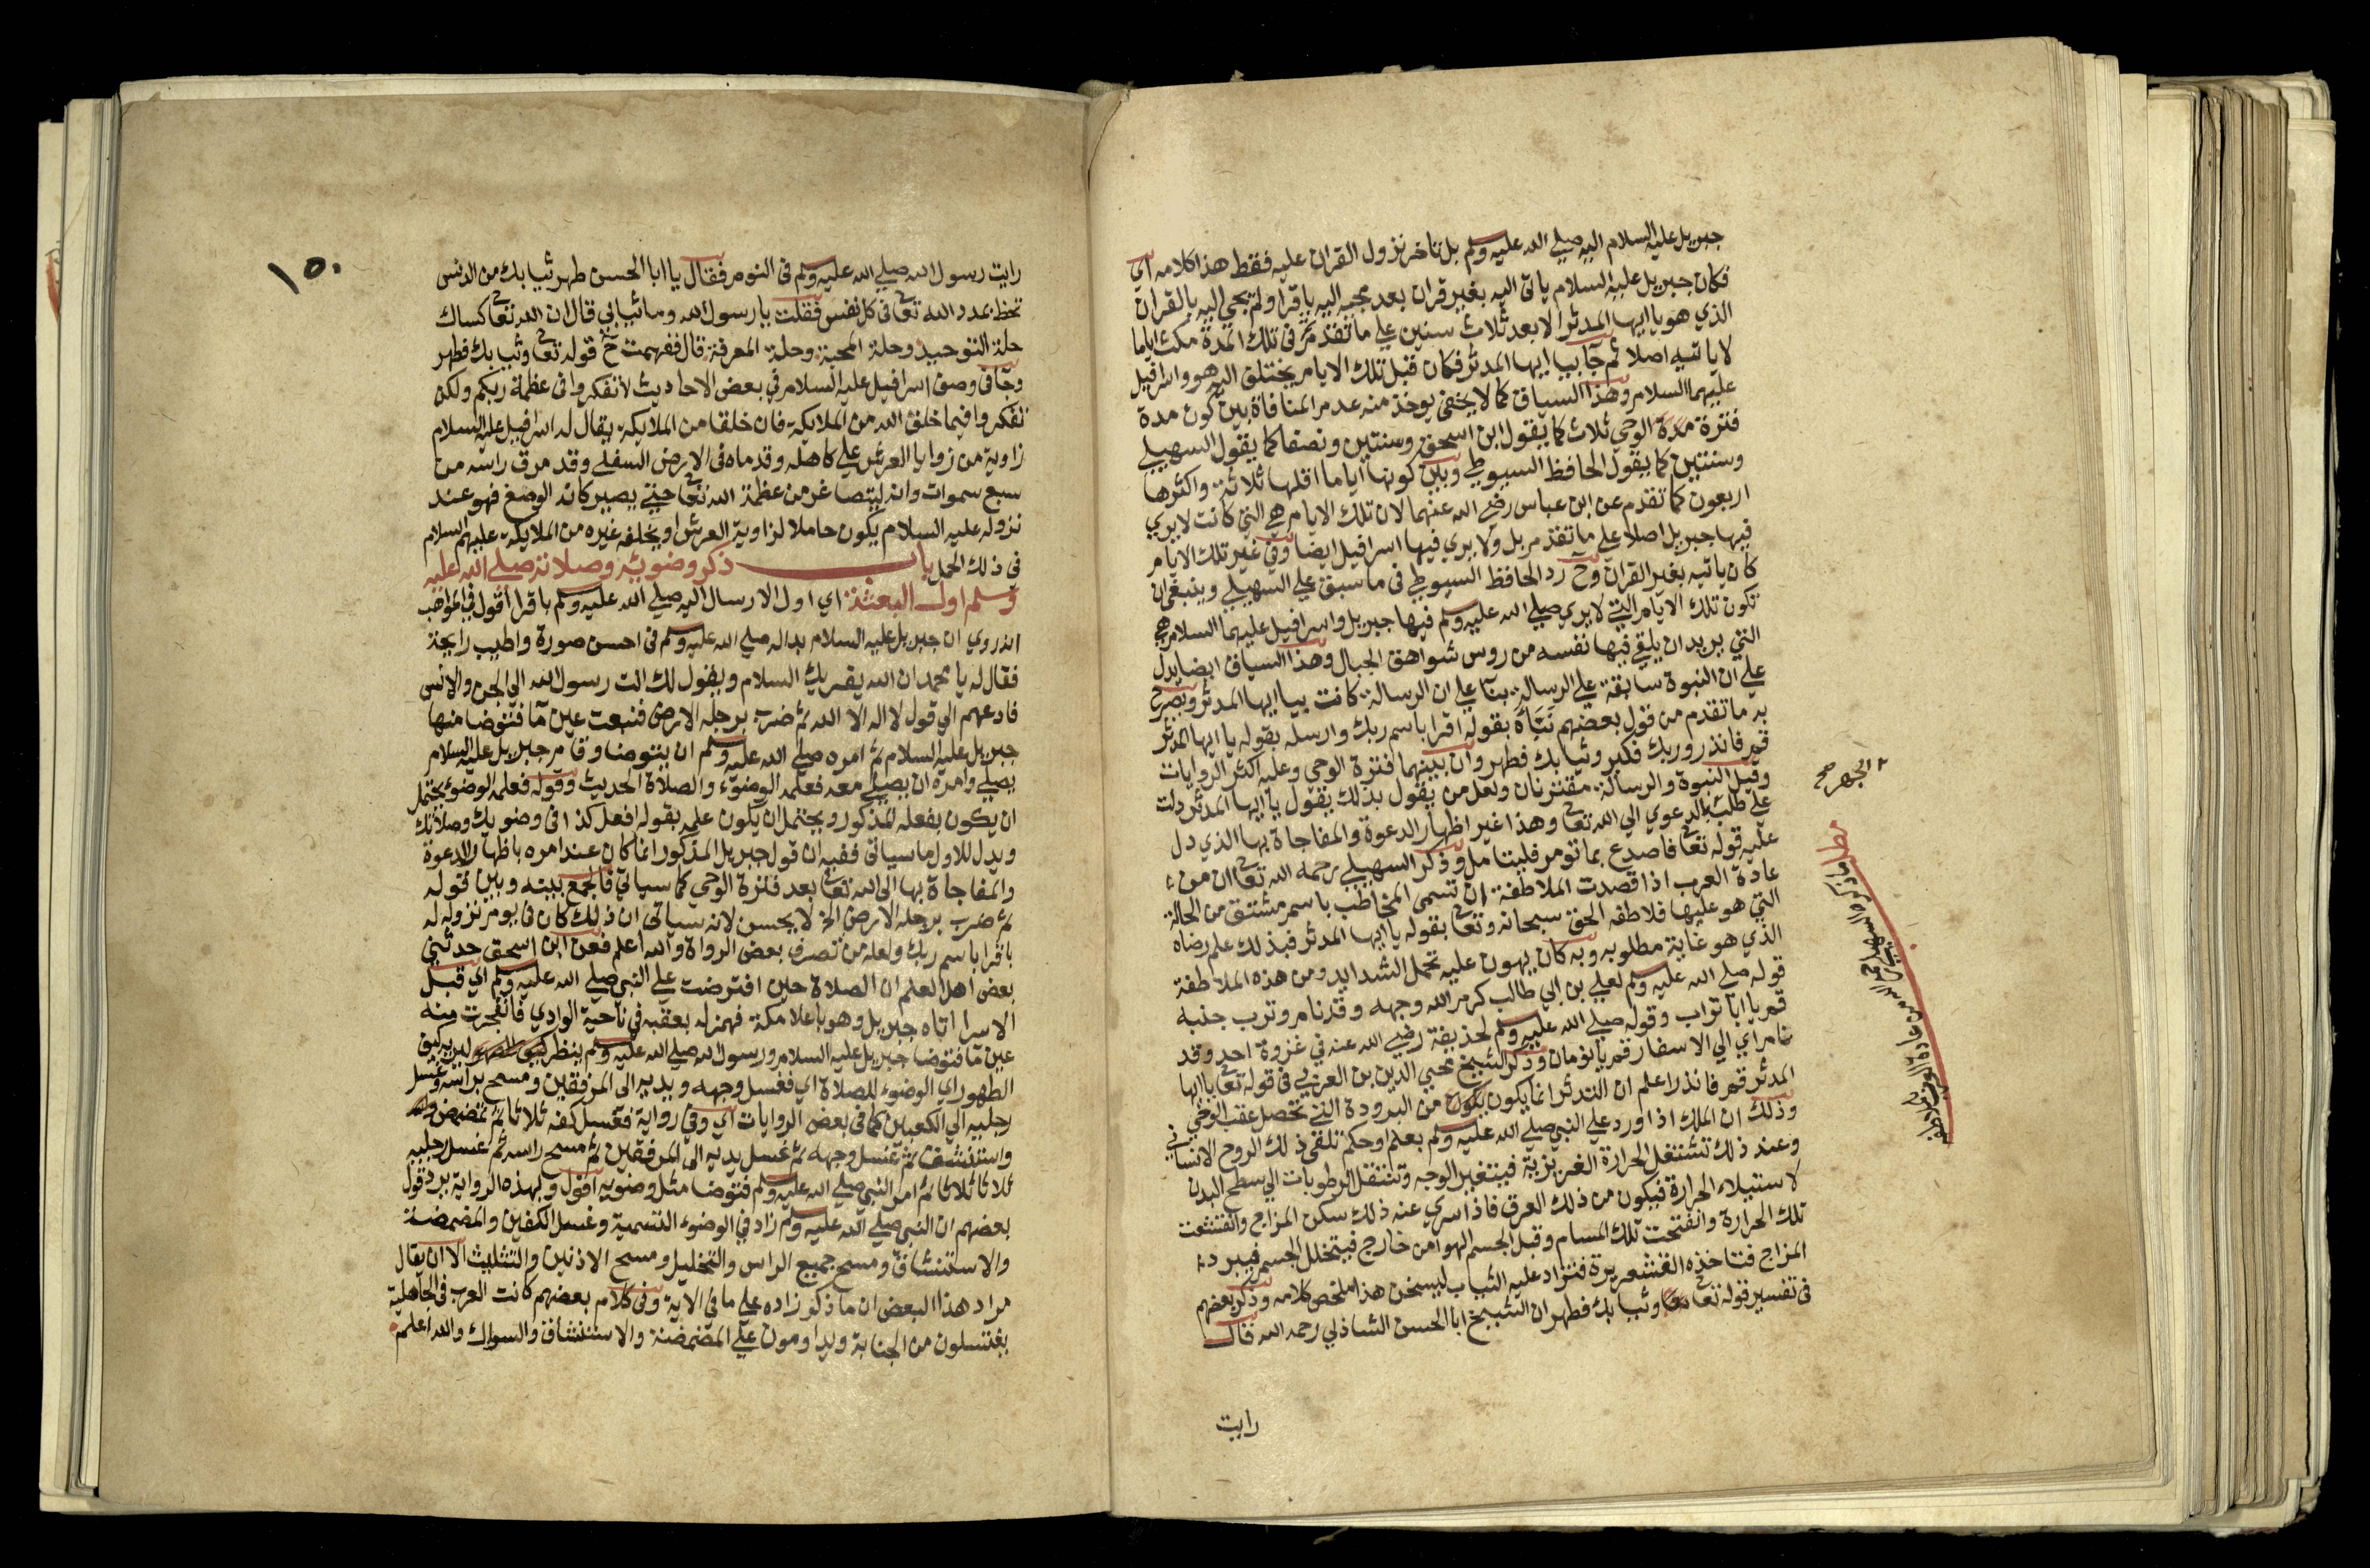 جبريل عليه السلام اليه صلي الله عليه وسلم بل تاخر نزول القران عليه فقط هذا كلامه اي
فكان جبريل عليه السلام ياتي اليه بغير قران بعد مجيه اليه باقرا ولم يجي اليه بالقران
الذي هو يا ايها المدثر الا بعد ثلاث سنين علي ما تقدم ثم في تلك المدة مكث اياما
لا ياتيه اصلا ثم جا بيا ايها المدثر فكان قبل تلك الايام يختلق اليه هو واسرافيل
عليهما السلام وهذا السياق كما لا يخفي يوخذ منه عدم المنافاة بين كون مدة
فترة الوحي ثلاث كما يقول ابن اسحق وسنتين ونصفا كما يقول السهيلي
وسنتين كما يقول الحافظ السيوطي وبين كونها اياما اقلها ثلاثة واكثرها
اربعون كما تقدم عن ابن عباس رضي الله عنهما لان تلك الايام هي التي كانت لا يري
فيها جبريل اصلا علي ما تقدم بل ولا يري فيها اسرافيل ايضا وفي غير تلك الايام
كان ياتيه بغير القران وح رد الحافظ السيوطي في ما سبق علي السهيلي وينبغي ان
تكون تلك الايام التي لا يري صلي الله عليه وسلم فيها جبريل واسرافيل عليهما السلام هي
التي يريد ان يلقي فيها نفسه من روس شواهق الجبال وهذا السياق ايضا يدل
علي ان النبوة سابقة علي الرسالة بنا علي ان الرسالة كانت بيا ايها المدثر ويصرح
به ما تقدم من قول بعضهم نباه بقوله اقرا باسم ربك وارسله بقوله يا ايها المدثر
قم فانذر وربك فكبر وثيابك فطهر وان بينهما فترة الوحي وعليه اكثر الروايات
وقيل النبوة والرسالة مقترنان ولعل من يقول بذلك يقول يا ايها المدثر دلت
علي طلب الدعوي الي الله تعا وهذا غير اظهار الدعوة والمفاجاة بها الذي دل
عليه قوله تعا فاصدع بما تومر فليتامل وذكر السهيلي رحمه الله تعا ان من
عادة العرب اذا قصدت الملاطفة ان تسمي المخاطب باسم مشتق من الحالة
التي هو عليها فلاطفه الحق سبحانه وتعا بقوله يا ايها المدثر فبذلك علم رضاه
الذي هو غاية مطلوبه وبه كان يهون عليه تحمل الشدايد ومن هذه الملاطفة
قوله صلي الله عليه وسلم لعلي بن ابي طالب كرم الله وجهه وقد نام وترب جنبه
قم يا ابا تراب وقوله صلي الله عليه وسلم لحذيفة رضي الله عنه في غزوة احد وقد
نام اي الي الاسفار قم يا نومان وذكر الشيخ محيي الدين بن العربي في قوله تعا يا ايها
المدثر قم فانذر اعلم ان التدثر انما يكون من البرودة التي تحصل عقب الوحي
وذلك ان الملك اذا ورد علي النبي صلي الله عليه وسلم بعلم او حكم تلقي ذلك الروح الانساني
وعند ذلك تشتعل الحرارة الغريزية فيتغير الوجه وتنتقل الرطوبات الي سطح البدن
لاستيلاء الحرارة فيكون من ذلك العرق فاذا سري عنه ذلك سكن المزاج وانقشعت
تلك الحرارة وانفتحت تلك المسام وقبل الجسم الهوا من خارج فيتخلل الجسم فيبرد
المزاج فتاخذه القشعريرة فتزاد عليه الثياب ليسخن هذا ملخص كلامه وذكر بعضهم
في تفسير قوله تعا وثيابك فطهر ان الشيخ ابا الحسن الشاذلي رحمه الله قال
رايت
الجهر صح
مطلب ما ذكره السهيلي رحمه الله من عادة العرب بالملاطفة
١٥٠
رايت رسول الله صلي الله عليه وسلم في النوم فقال يا ابا الحسن طهر ثيابك من الدنس
تحظ بمدد الله تعا في كل نفس فقلت يا رسول الله وما ثيابي قال ان الله تعا كساك
حلة التوحيد وحلة المحبة وحلة المعرفة قال ففهمت ح قوله تعا وثيابك فطهر
وجا في وصف اسرافيل عليه السلام في بعض الاحاديث لا تفكروا في عظمة ربكم ولكن
تفكروا فيما خلق الله من الملايكة فان خلقا من الملايكة يقال له اسرافيل عليه السلام
زاوية من زوايا العرش علي كاهله وقدماه في الارض السفلي وقد مرق راسه من
سبع سموات وانه ليتصاغر من عظمة الله تعا حتي يصير كانه الوصع فهو عند
نزوله عليه السلام يكون حاملا لزاوية العرش او يخلفه غيره من الملايكة عليهم السلام
في ذلك الحمل باب ذكر وضويه وصلاته صلي الله عليه
وسلم اول البعثة اي اول الارسال اليه صلي الله عليه وسلم باقرا اقول في المواهب
انه روي ان جبريل عليه السلام بدا له صلي الله عليه وسلم في احسن صورة واطيب رايحة
فقال له يا محمد ان الله يقريك السلام ويقول لك انت رسول الله الي الجن والانس
فادعهم الي قول لا اله الا الله ثم ضرب برجله الارض فنبعت عين ما فتوضا منها
جبريل عليه السلام ثم امره صلي الله عليه وسلم ان يتوضا وقام جبريل عليه السلام
يصلي وامره ان يصلي معه فعلمه الوضوء والصلاة الحديث وقوله فعلمه الوضوء يحتمل
ان يكون بفعله المذكور ويحتمل ان يكون علمه بقوله افعل كذا في وضويك وصلاتك
ويدل للاول ما سياتي ففيه ان قول جبريل المذكور انما كان عند امره باظهار الدعوة
والمفاجاة بها الي الله تعا بعد فترة الوحي كما سياتي فالجمع بينه وبين قوله
ثم ضرب برجله الارض الخ لا يحسن لانه سياتي ان ذلك كان في يوم نزوله له
باقرا باسم ربك ولعله من تصرف بعض الرواة والله اعلم فعن ابن اسحق حدثني
بعض اهل العلم ان الصلاة حين افترضت علي النبي صلي الله عليه وسلم اي قبل
الاسرا اتاه جبريل وهو باعلا مكة فهمز له بعقبه في ناحية الوادي فانفجرت منه
عين ما فتوضا جبريل عليه السلام ورسول الله صلي الله عليه وسلم ينظر ليريه كيف
الطهور اي الوضوء للصلاة اي فغسل وجهه ويديه الي المرفقين ومسح براسه وغسل
رجليه الي الكعبين كما في بعض الروايات اي وفي رواية فغسل كفه ثلاثا ثم تمضمض
واستنشق ثم غسل وجهه ثم غسل يديه الي المرفقين ثم مسح راسه ثم غسل رجليه
ثلاثا ثلاثا ثم امر النبي صلي الله عليه وسلم فتوضا مثل وضويه اقول وبهذه الرواية يرد قول
بعضهم ان النبي صلي الله عليه وسلم زاد في الوضوء التسمية وغسل الكفين والمضمضة
والاستنشاق ومسح جميع الراس والتخليل ومسح الاذنين والتثليث الا ان يقال
مراد هذا البعض ان ما ذكر زاده علي ما في الاية وفي كلام بعضهم كانت العرب في الجاهلية
يغتسلون من الجنابة ويداومون علي المضمضة والاستنشاق والسواك والله اعلم